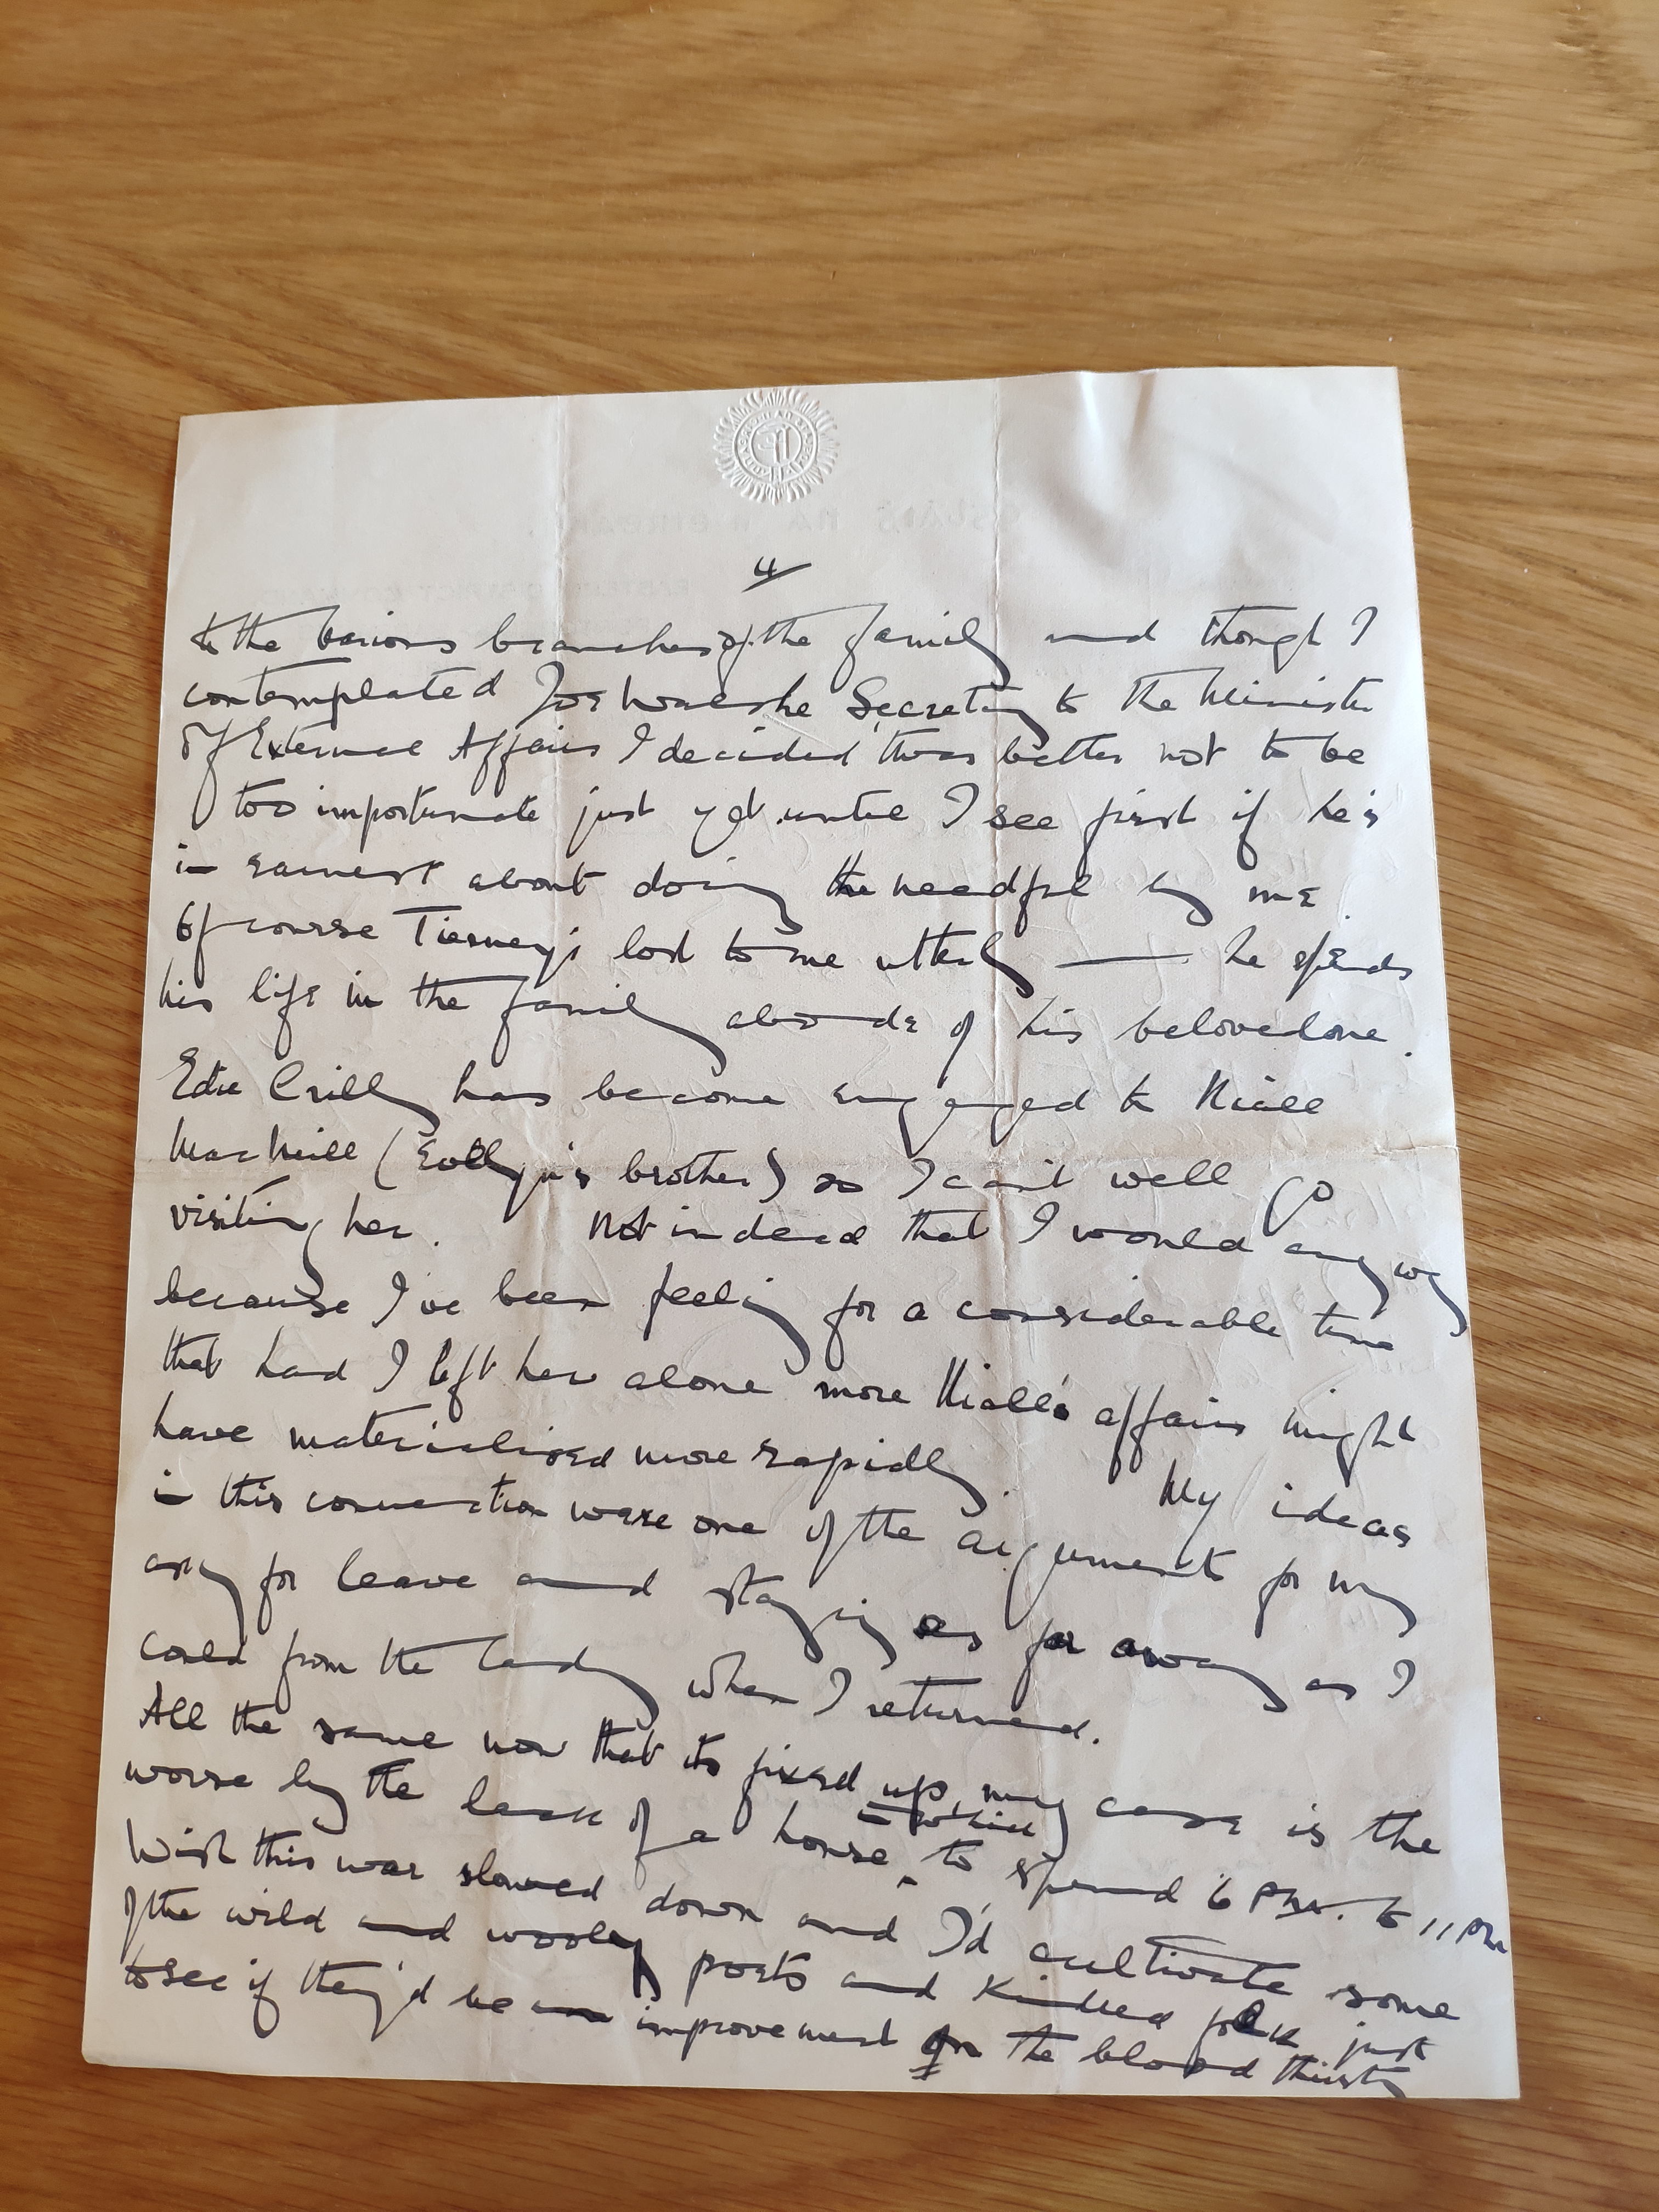 4
to the various branches of the family and though I
contemplated Joe Walshe Secretary to the Minister
of External Affairs I decided 'twas better not to be
too importunate just yet until I see first if he's
in earnest about doing the needful by me.
Of course Tierney's lost to me utterly — he spends
his life in the family abode of his beloved one.
Edie Crilly has become engaged to Niall
MacNeill (Eilly's brother) so I can't well go
visiting her. Not indeed that I would anyway
because I've been feeling for a considerable time
that had I left her alone more Niall's affairs might
have materialised more rapidly. My ideas
in this connection were one of the arguments for my
for leave and staying as far away as I
could from the lady when I returned.
All the same now that its fixed up, my case is the
worse by the lack of a house in which to spend 6 PM. to 11 PM
Wish this war slowed down and I'd cultivate some
of the wild and wooley poets and kindred folk just
to see if they'd be an improvement on the blood thirsty